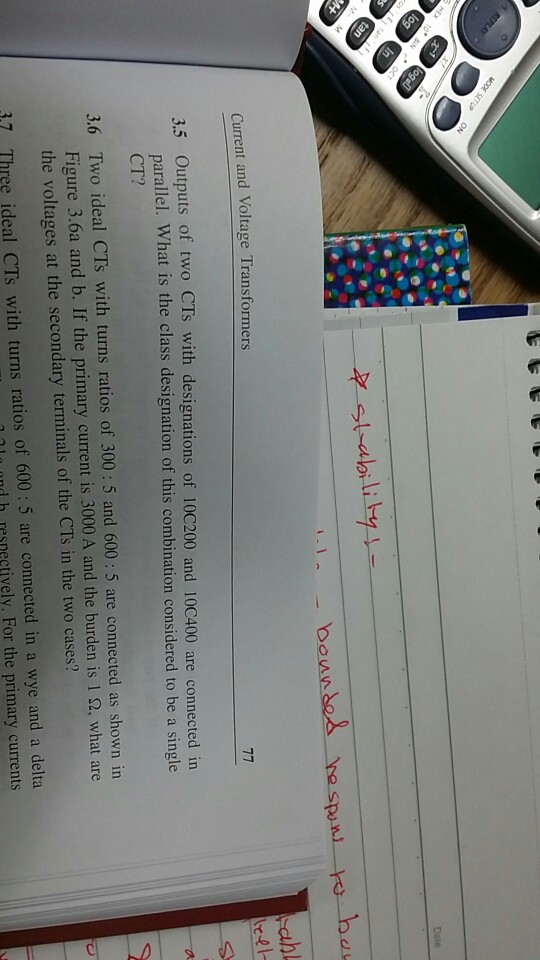 Current and Voltage Transformers 77
3.5 Outputs of two CTs with designations of 10C200 and 10C400 are connected in
parallel. What is the class designation of this combination considered to be a single
CT?
3.6 Two ideal CTs with turns ratios of 300 : 5 and 600 : 5 are connected as shown in
Figure 3.6a and b. If the primary current is 3000 A and the burden is 1 Ω, what are
the voltages at the secondary terminals of the CTs in the two cases?
3.7 Three ideal CTs with turns ratios of 600 : 5 are connected in a wye and a delta
respectively. For the primary currents
* stability :-
- bounded respon to bou
Date
REPLAY
MODE SETUP
ON
M+
tan
log
ln
x⁻¹
HEX
BIN
OCT